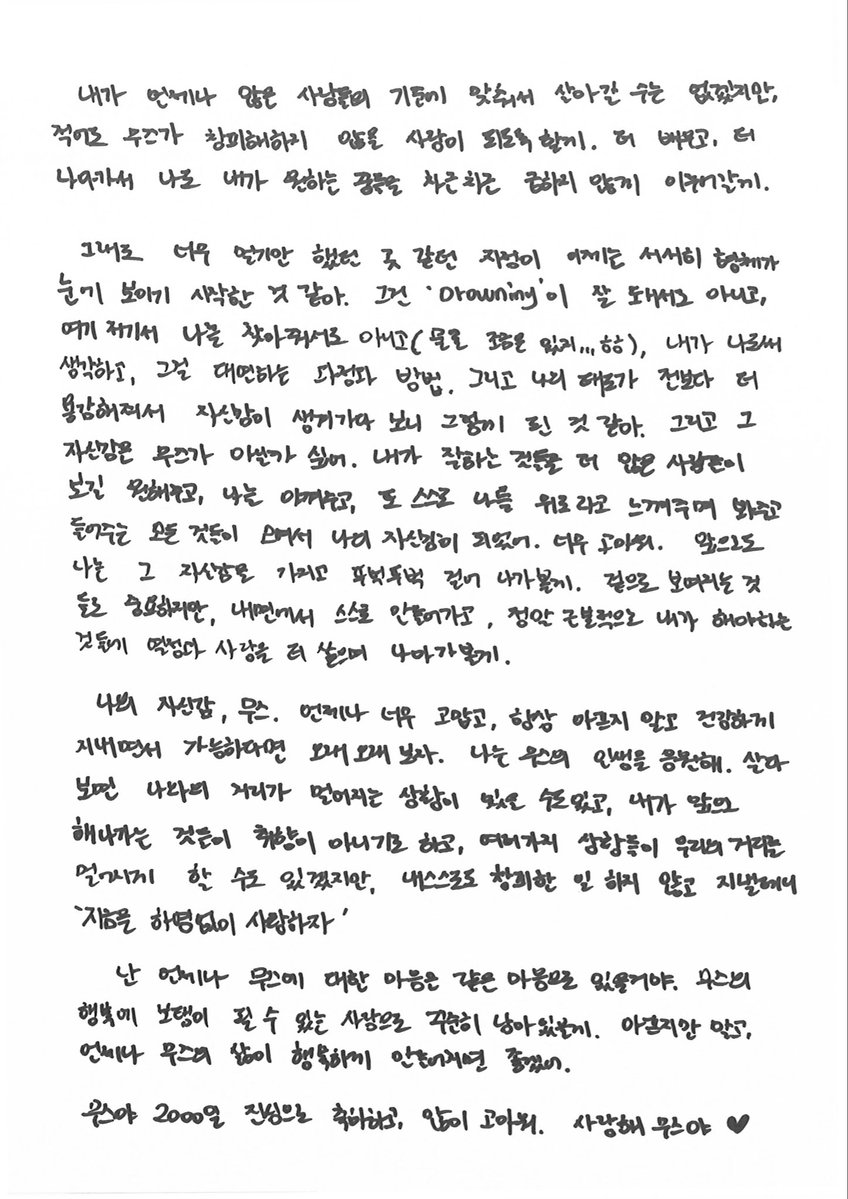 내가 언제나 많은 사람들의 기준에 맞춰서 살아갈 수는 없겠지만,
적어도 무즈가 창피해하지 않을 사람이 되도록 할게. 더 배우고, 더
나아가서 나로 내가 원하는 것들을 차근차근 급하지 않게 이루어갈게.
그래도 너무 멀기만 했던 곳 같던 지점이 이제는 서서히 형체가
눈에 보이기 시작한 것 같아. 그건 'Drowning'이 잘 돼서도 아니고,
여기 저기서 나를 찾아줘서도 아니고(물론 조금은 있지...ㅎㅎ), 내가 나로써
생각하고, 그걸 대면하는 과정과 방법. 그리고 나의 태도가 전보다 더
용감해져서 자신감이 생기가다 보니 그렇게 된 것 같아. 그리고 그
자신감은 무즈가 아닌가 싶어. 내가 잘하는 것들을 더 많은 사람들이
보길 원해주고, 나를 아껴주고, 또 스스로 나를 위로라고 느껴주며 봐주고
들어주는 모든 것들이 모여서 나의 자신감이 되었어. 너무 고마워. 앞으로도
나는 그 자신감을 가지고 뚜벅뚜벅 걸어 나가볼게. 겉으로 보여지는 것
들도 중요하지만, 내면에서 스스로 만들어가고, 정말 근본적으로 내가 해야하는
것들에 열정과 사랑을 더 쏟으며 나아가볼게.
나의 자신감, 무즈. 언제나 너무 고맙고, 항상 아프지 말고 건강하게
지내면서 가능하다면 오래오래 보자. 나는 무즈의 인생을 응원해. 살다
보면 나와의 거리가 멀어지는 상황이 있을 수도있고, 내가 앞으로
해나가는 것들이 취향이 아니기도 하고, 여러가지 상황들이 우리의 거리를
멀어지게 할 수도 있겠지만, 내스스로도 창피한 일 하지 않고 지낼테니
'지금을 하염없이 사랑하자'
난 언제나 무즈에 대한 마음은 같은 마음으로 있을거야. 무즈의
행복에 보탬이 될 수 있는 사람으로 꾸준히 남아있을게. 아프지만 말고,
언제나 무즈의 삶이 행복하게 만들어지면 좋겠어.
무즈야 2000일 진심으로 축하하고, 많이 고마워. 사랑해 무즈야 ♥